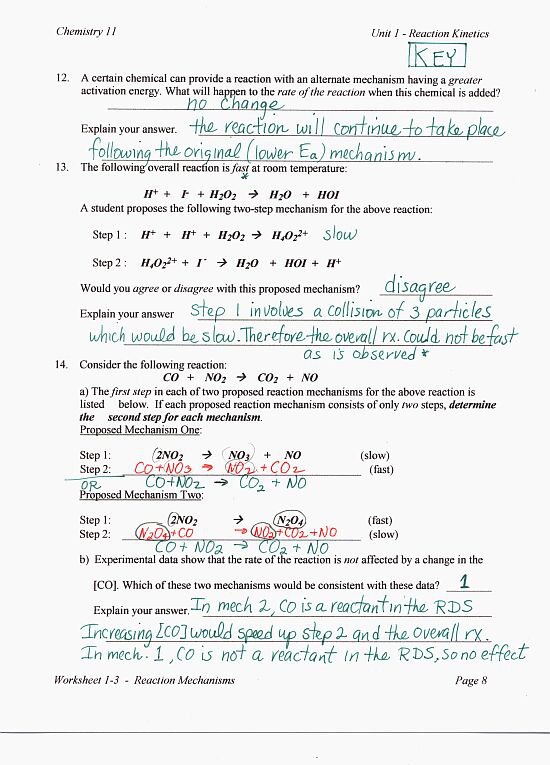 Chemistry 11 Unit 1 - Reaction Kinetics
KEY
12. A certain chemical can provide a reaction with an alternate mechanism having a greater
activation energy. What will happen to the rate of the reaction when this chemical is added?
no change
Explain your answer. the reaction will continue to take place
following the original (lower Ea) mechanism.
13. The following overall reaction is fast at room temperature:
*
H⁺ + I⁻ + H₂O₂ → H₂O + HOI
A student proposes the following two-step mechanism for the above reaction:
Step 1 : H⁺ + H⁺ + H₂O₂ → H₄O₂²⁺ slow
Step 2 : H₄O₂²⁺ + I⁻ → H₂O + HOI + H⁺
Would you agree or disagree with this proposed mechanism? disagree
Explain your answer Step 1 involves a collision of 3 particles
which would be slow. Therefore the overall rx. could not be fast
as is observed *
14. Consider the following reaction:
CO + NO₂ → CO₂ + NO
a) The first step in each of two proposed reaction mechanisms for the above reaction is
listed below. If each proposed reaction mechanism consists of only two steps, determine
the second step for each mechanism.
Proposed Mechanism One:
Step 1: 2NO₂ → NO₃ + NO (slow)
Step 2: CO + NO₃ → NO₂ + CO₂ (fast)
OR CO + NO₂ → CO₂ + NO
Proposed Mechanism Two:
Step 1: 2NO₂ → N₂O₄ (fast)
Step 2: N₂O₄ + CO → NO₂ + CO₂ + NO (slow)
CO + NO₂ → CO₂ + NO
b) Experimental data show that the rate of the reaction is not affected by a change in the
[CO]. Which of these two mechanisms would be consistent with these data? 1
Explain your answer. In mech 2, CO is a reactant in the RDS
Increasing [CO] would speed up step 2 and the overall rx.
In mech. 1, CO is not a reactant in the RDS, so no effect
Worksheet 1-3 - Reaction Mechanisms Page 8